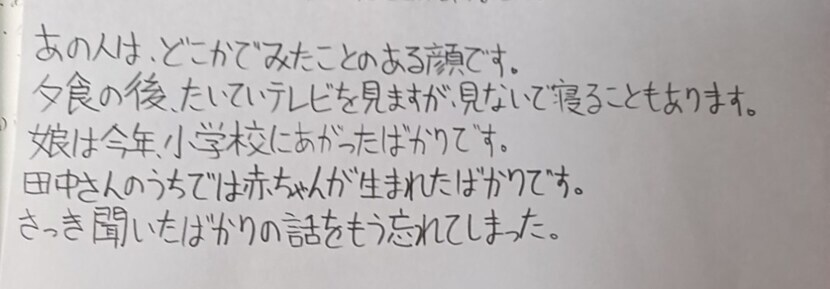 あの人は、どこかでみたことのある顔です。
夕食の後、たいていテレビを見ますが、見ないで寝ることもあります。
娘は今年、小学校にあがったばかりです。
田中さんのうちでは赤ちゃんが生まれたばかりです。
さっき聞いたばかりの話をもう忘れてしまった。